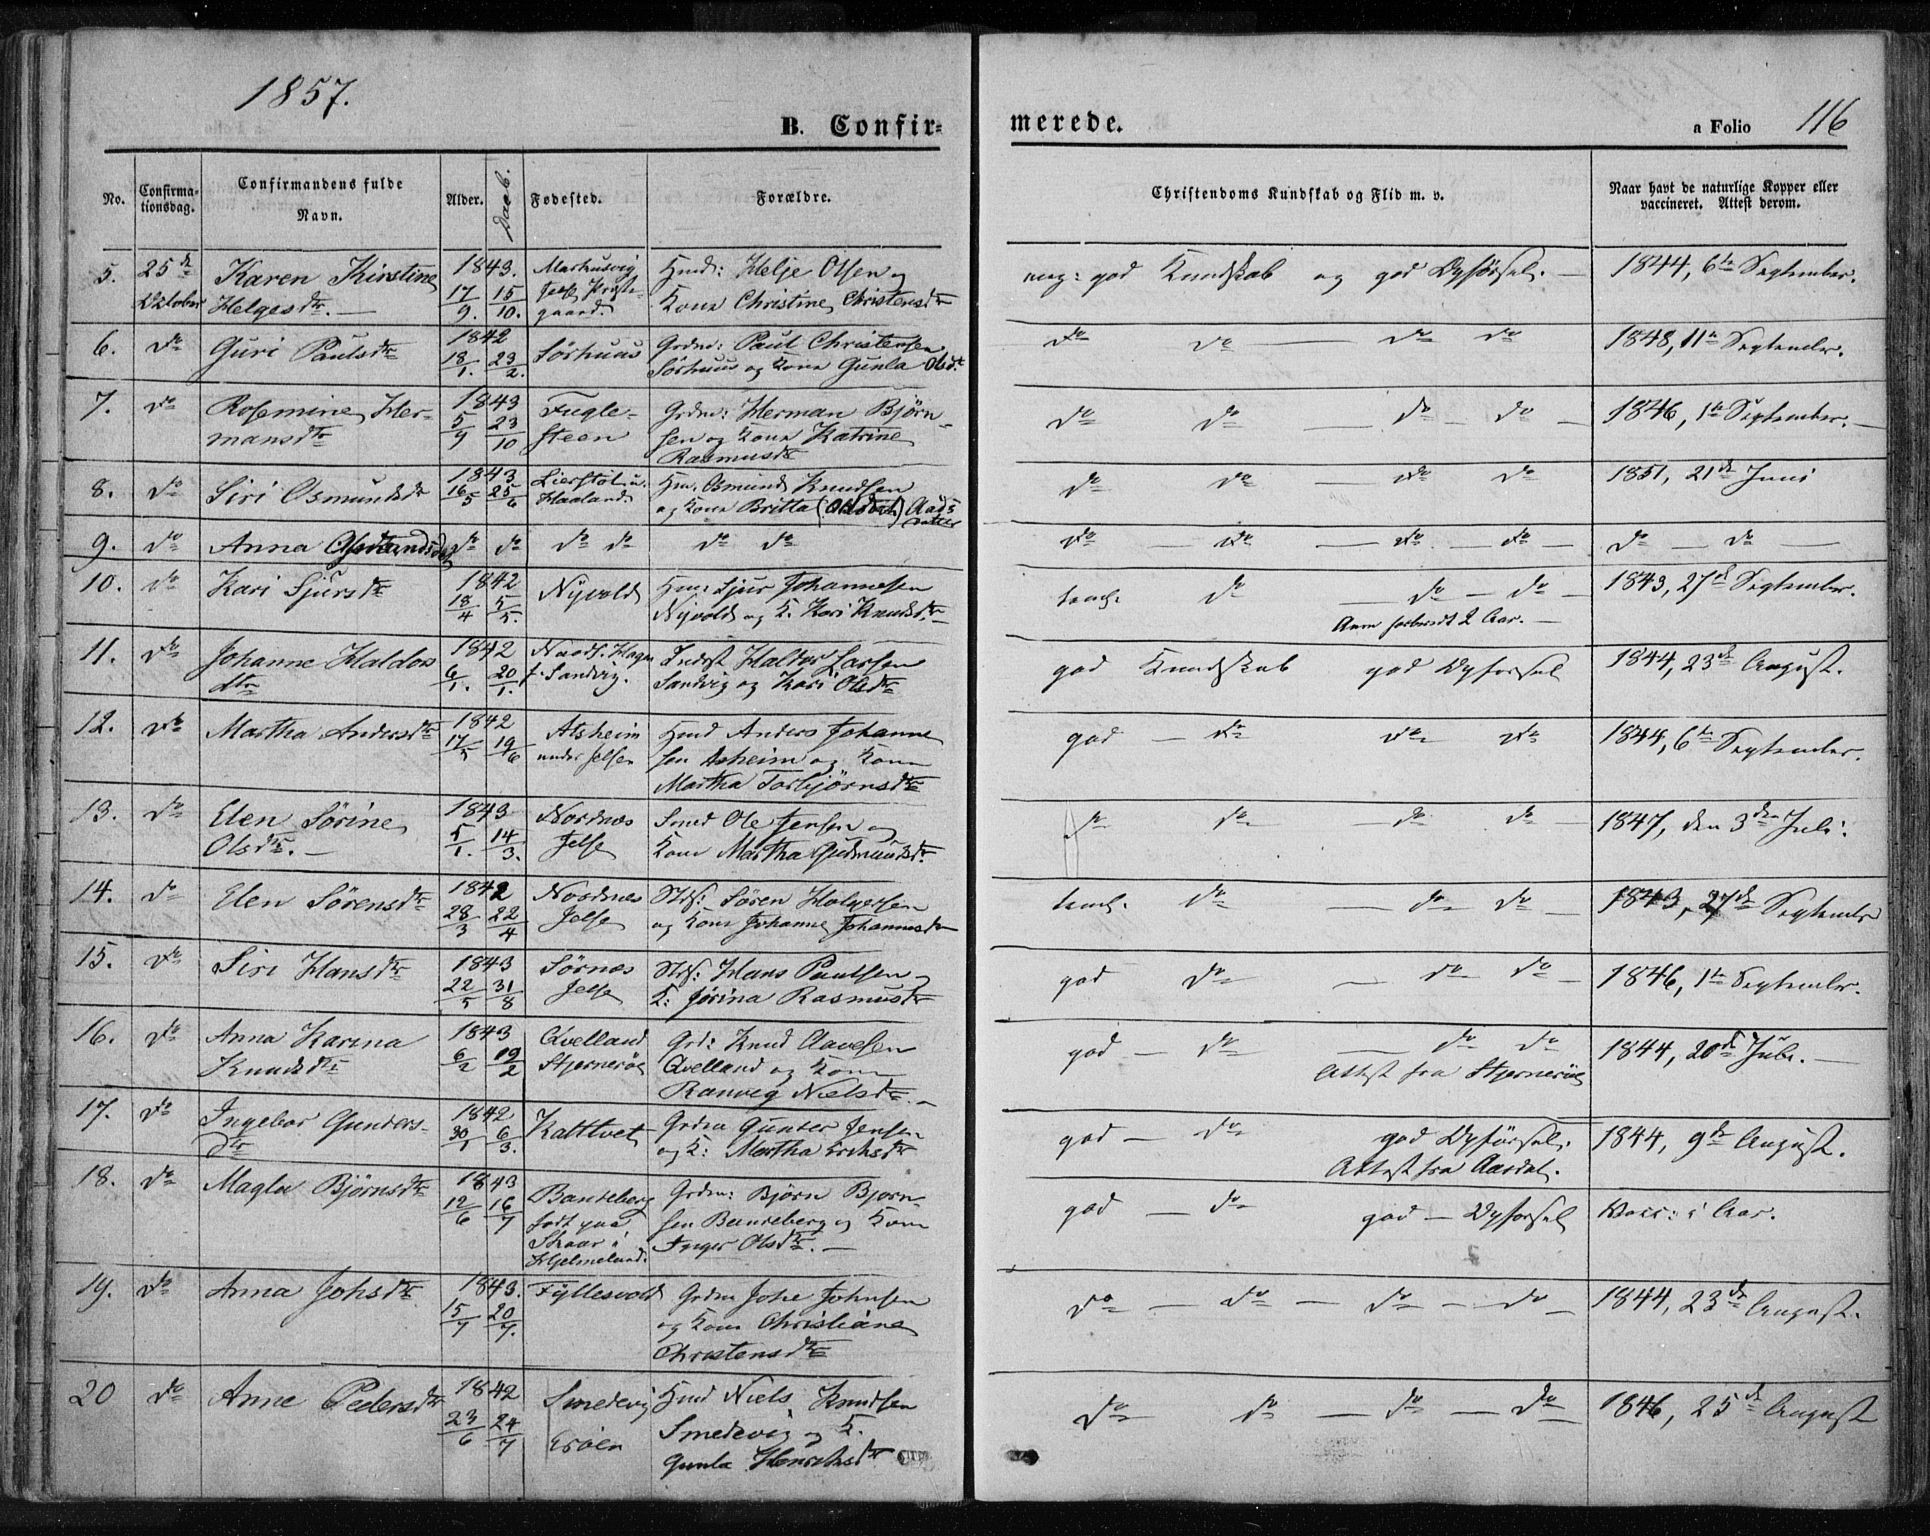 1857.
B. Confir-
merede.
a Folio 116
No.
Confirma-
tionsdag.
Confirmandens fulde
Navn.
Alder.
Daab.
Fødested.
Forældre.
Christendoms Kundskab og Flid m. v.
Naar havt de naturlige Kopper eller
vaccineret. Attest derom.
5. 25de Karen Kirstine 1843. Marhusvig Huusm: Helje Olsen og
Oktober Helgesdtr. 17/9. 15/10. Jelse Præste-
gaard. Kone Christine Christensdtr
god Kundskab og god Opførsel. 1844, 6te September.
6. do Guri Paulsdtr 1842 18/1. 23/2. Sørhuus Grdm: Paul Christensen
Sørhuus og Kone Gunla Olsdtr
do do do do 1848, 11te September.
7. do Rosemine Her-
mansdtr 1843 5/9 23/10 Fugle-
steen Grdm: Herman Bjørn-
sen og Kone Katrine
Rasmusdtr
do do do do 1846, 1te September.
8. do Siri Osmundsdtr 1843 16/5 25/6 Lierstøl u.
Haaland Hm. Osmund Knudsen
og Kone Britta (Olsdtr) Aads
datter
do do do do 1851, 21de Juni
9. do Anna Osmundsdtr do do do do do do
do do do do do do
10. do Kari Sjursdtr 1842 18/4 5/5. Nyvold Hm: Sjur Johannesen
Nyvold og K. Kari Knudsdtr
teml. do do do 1843, 27de September.
forberedt 2 Aar.
11. do Johanne Haldors
dtr 1842 6/1. 20/1. Hagen
i Sandvig. Inderst Haldor Larsen
Sandvig og Kari Olsdtr
god Kundskab god Opførsel 1844, 23de August.
12. do Martha Andersdtr 1842 17/5 19/6 Atsheim
under Jelse Huusm Anders Johanne
sen Asheim og Kone
Martha Torbjørnsdtr
god do do do 1844, 6te September.
13. do Elen Sørine
Olsdtr. 1843 5/1. 14/3. Nordnæs
Jelse Smed Ole Jensen og
Kone Martha Gudmundsdtr.
do do do do 1847, den 3die Juli.
14. do Elen Sørensdtr 1842 28/3 22/4 Nordnes
Jelse Strs: Søren Holgersen
og Kone Johanne Johannesdtr
teml. do do do 1843, 27de September
15. do Siri Hansdtr 1843 22/5 31/8 Sørnæs
Jelse Strs: Hans Paulsen
K: Jorina Rasmusdtr
god do do do 1846, 1te September.
16. do Anna Karina
Knudsdtr 1843 6/2 19/2 Qvelland
Stjernerøe Grd: Knud Aavesen
Qvelland og Kone
Ranveg Nielsdtr.
god do do do 1844, 20de Juli.
Attest fra Stjernerøe
17. do Ingebor Gunders-
dtr 1842 30/1 6/3. Kalltvet Grdm Gunder Jensen
og K: Martha Eriksdtr
god do god Opførsel. 1844, 9de August.
Attest fra Aardal.
18. do Magla Bjørnsdtr 1843 12/6 16/7 Bandeberg
født paa
Skaar i
Hjelmeland. Grdm: Bjørn Bjørn-
sen Bandeberg og Kone
Inger Olsdtr.
god do god Opførsel Vacc: i Aar.
19. do Anna Johsdtr 1843. 15/7 20/7. Fyllesvold Grdm Johe Johnsen
og Kone Christiane
Christensdtr
do do do do 1844, 23de August.
20 do Anne Pedersdtr 1842 23/6 24/7 Smedevig
Erøen Huusm Niels Knudsen
Smedevig og K.
Gunla Henriksdtr
do do do do 1846, 25de August